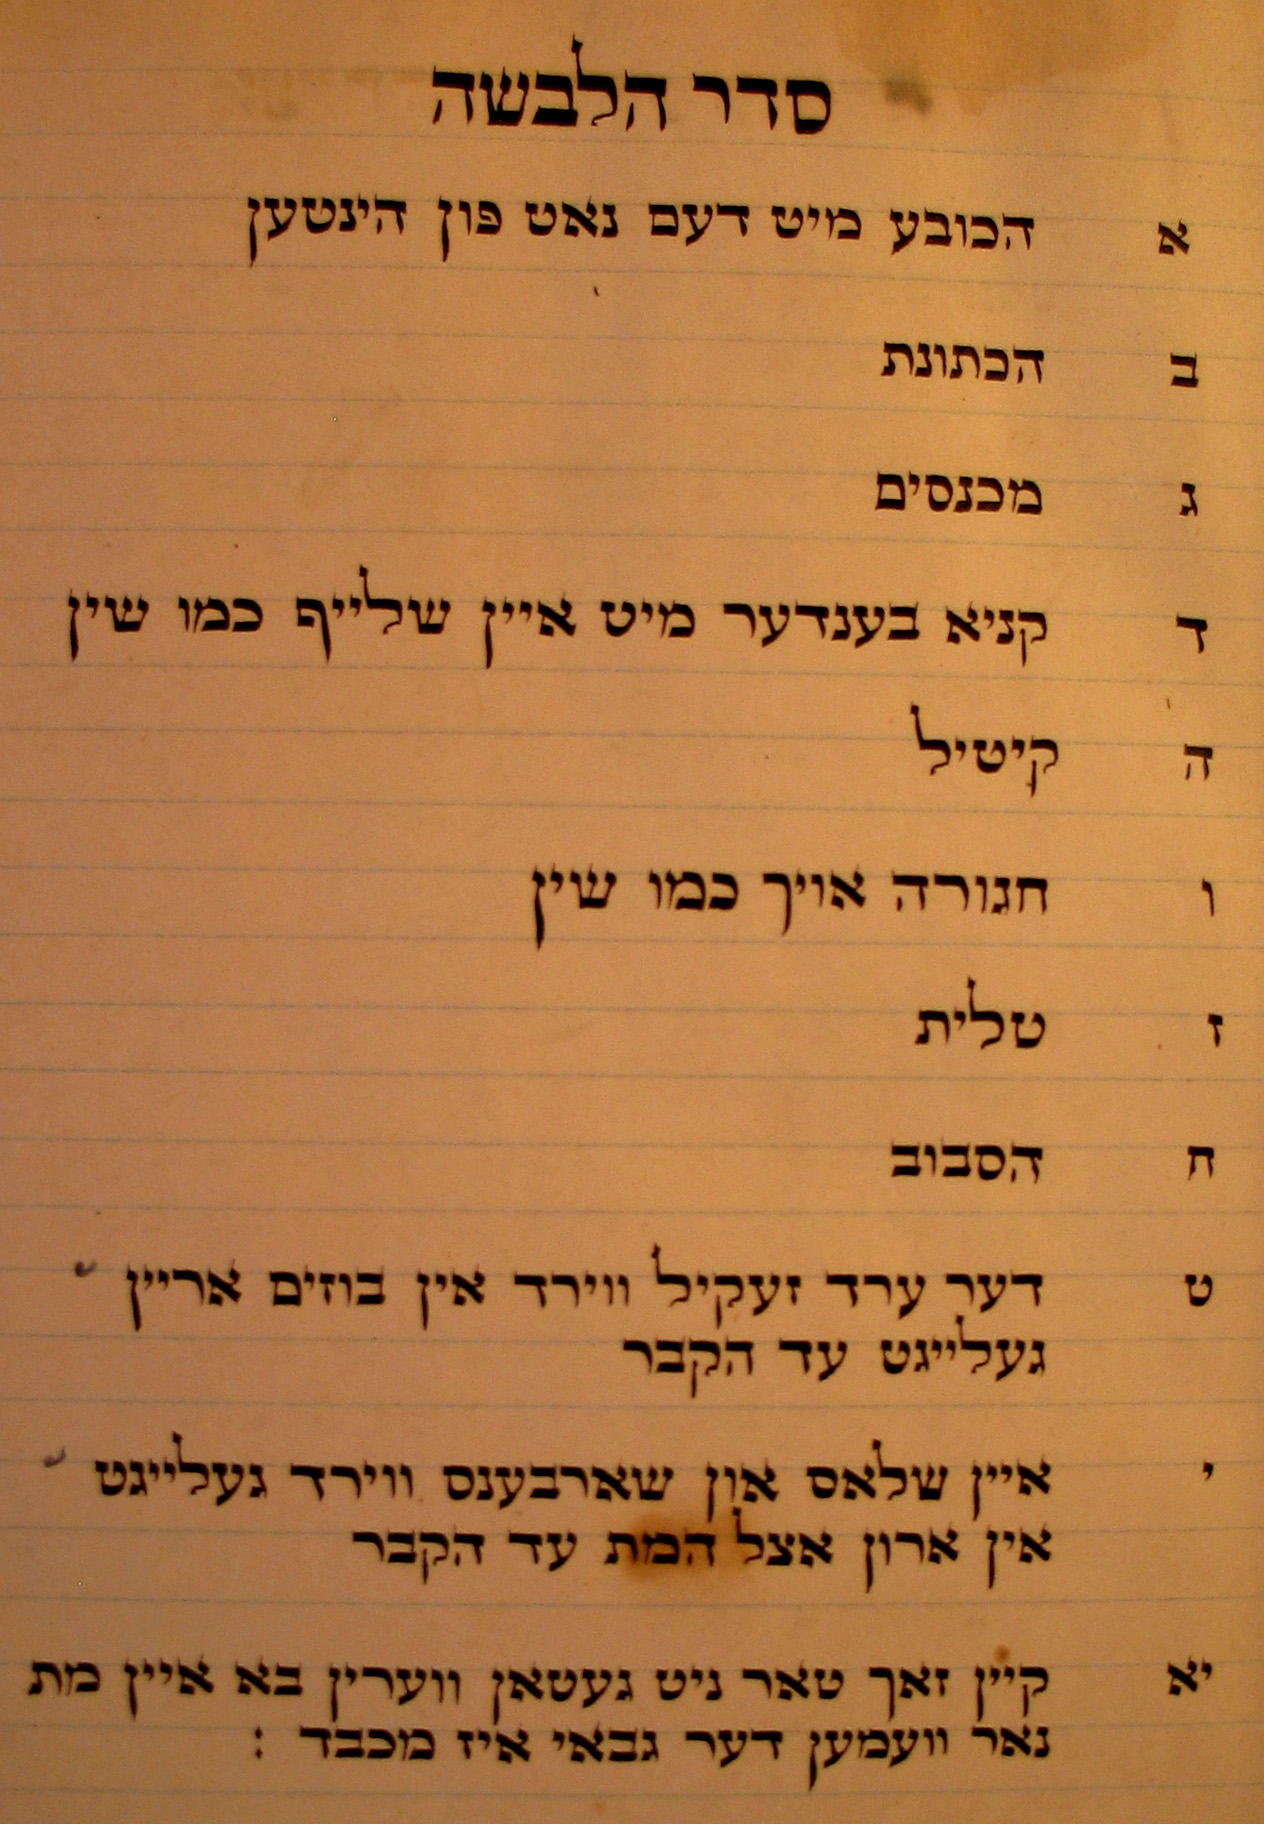 סדר הלבשה
א הכובע מיט דעם נאט פון הינטען
ב הכתונת
ג מכנסים
ד קניא בענדער מיט איין שלייף כמו שין
ה קיטיל
ו חגורה אויך כמו שין
ז טלית
ח הסבוב
ט דער ערד זעקיל ווירד אין בוזים אריין
געלייגט עד הקבר
י איין שלאס און שארבענס ווירד געלייגט
אין ארון אצל המת עד הקבר
יא קיין זאך טאר ניט געטאן ווערין בא איין מת
נאר וועמען דער גבאי איז מכבד :